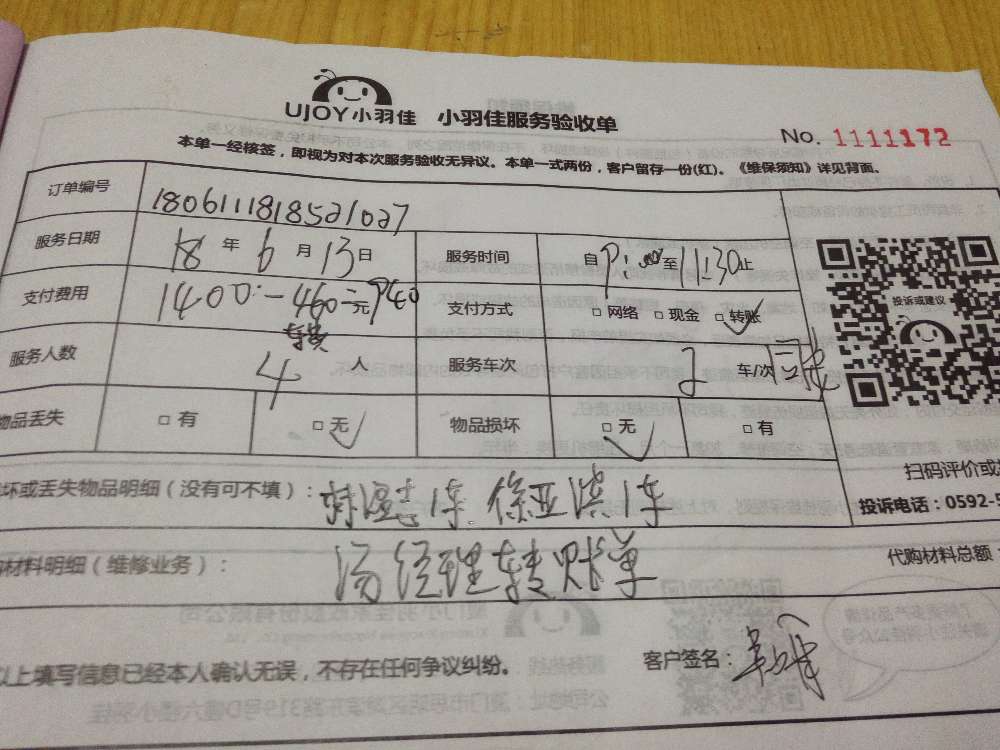 UJOY小羽佳 小羽佳服务验收单
No. 1111172
本单一经核签，即视为对本次服务验收无异议。本单一式两份，客户留存一份(红)。《维保须知》详见背面。
订单编号 1806111818521027
服务日期 18 年 6 月 13 日 服务时间 自 至 11:30 止
支付费用 1400:-460=元940 支付方式 □ 网络 □ 现金 □ 转账
服务人数 4 人 服务车次 2 车/次
物品丢失 □ 有 □ 无 物品损坏 □ 无 □ 有
投诉或建议
扫码评价或
坏或丢失物品明细（没有可不填）： 1车. 徐亚滨1车
投诉电话：0592-5
材料明细（维修业务）： 汤经理转账单
代购材料总额
以上填写信息已经本人确认无误，不存在任何争议纠纷。
客户签名：